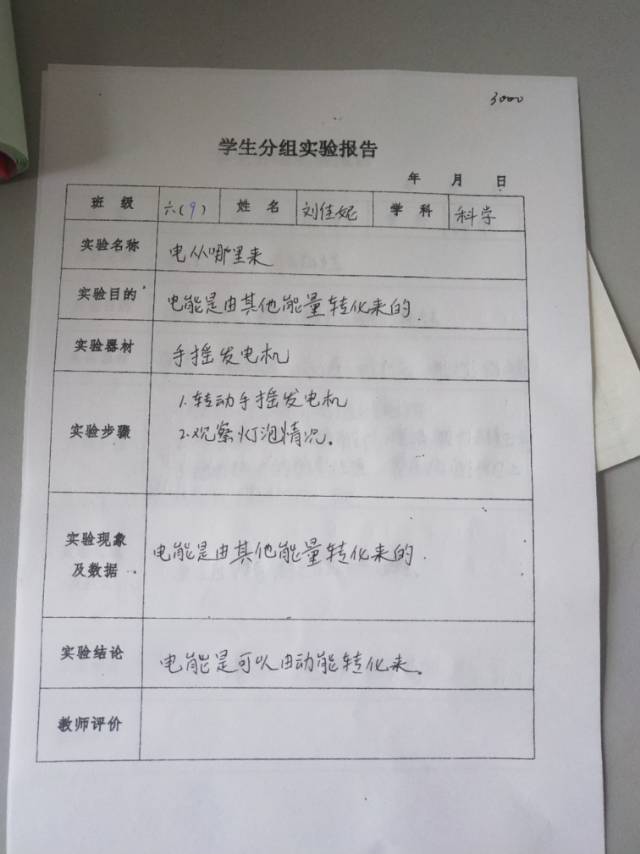 3000
学生分组实验报告
年 月 日
班 级 六(9) 姓 名 刘佳妮 学 科 科学
实验名称 电从哪里来
实验目的 电能是由其他能量转化来的.
实验器材 手摇发电机
实验步骤
1.转动手摇发电机
2.观察灯泡情况。
实验现象
及数据
电能是由其他能量转化来的.
实验结论 电能是可以由动能转化来。
教师评价